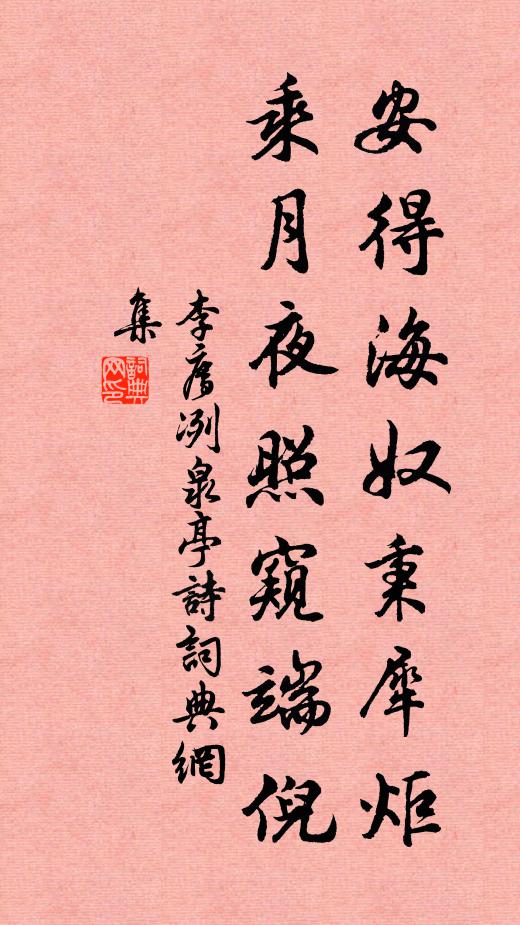 安得海奴秉犀炬
乘月夜照窺端倪
李廌冽泉亭詩詞典網
集
詞典網印